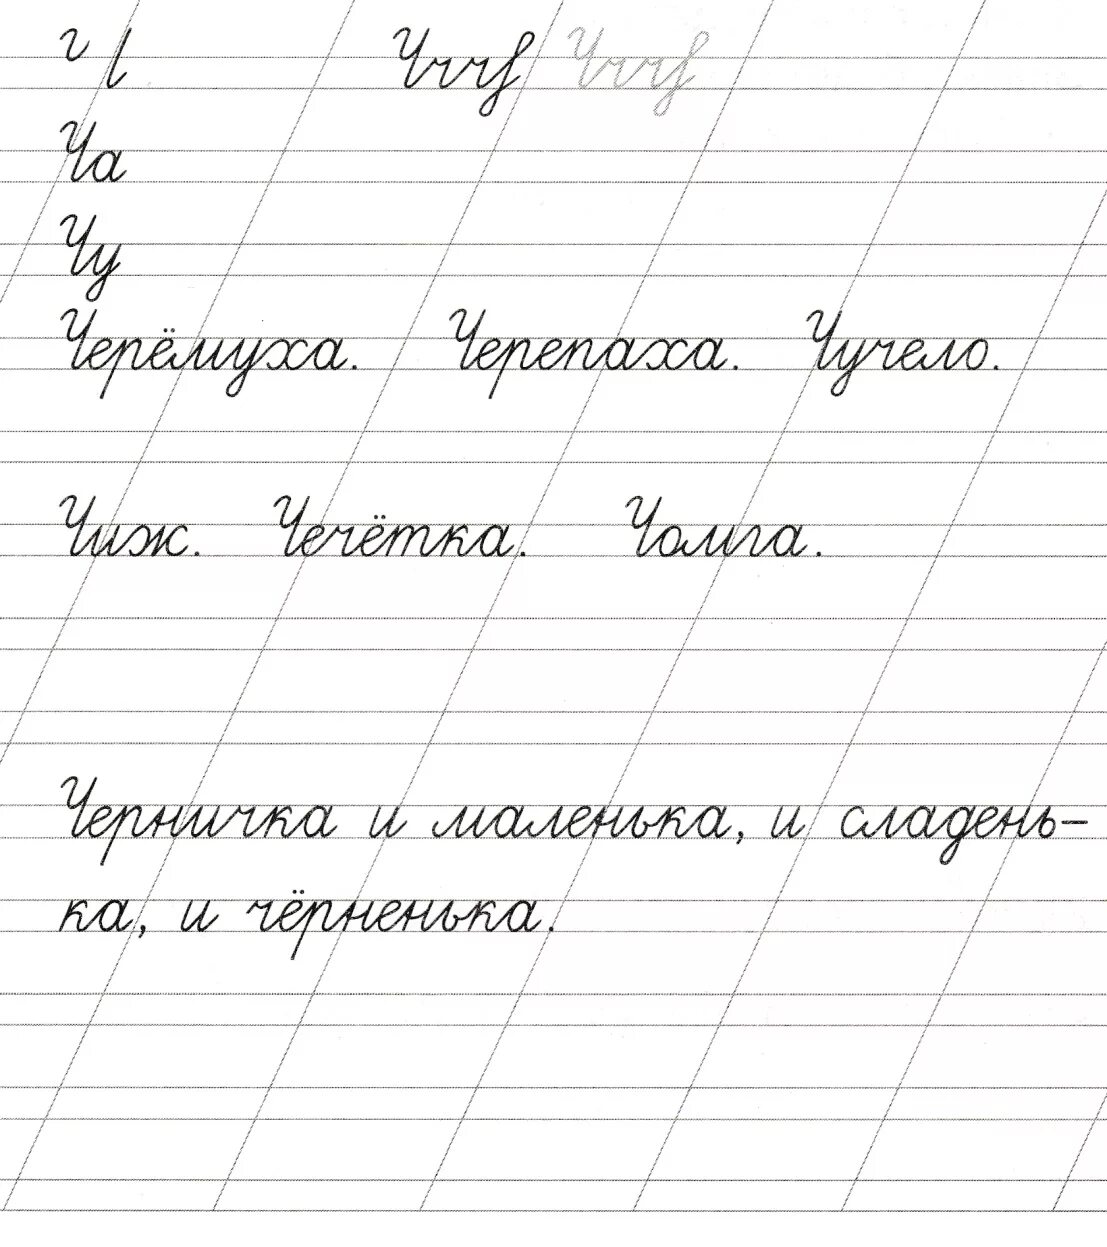 Ча
Чу
Черёмуха. Черепаха. Чучело.
Чиж. Чечётка. Чомга.
Черничка и маленька, и сладень-
ка, и чёрненька.